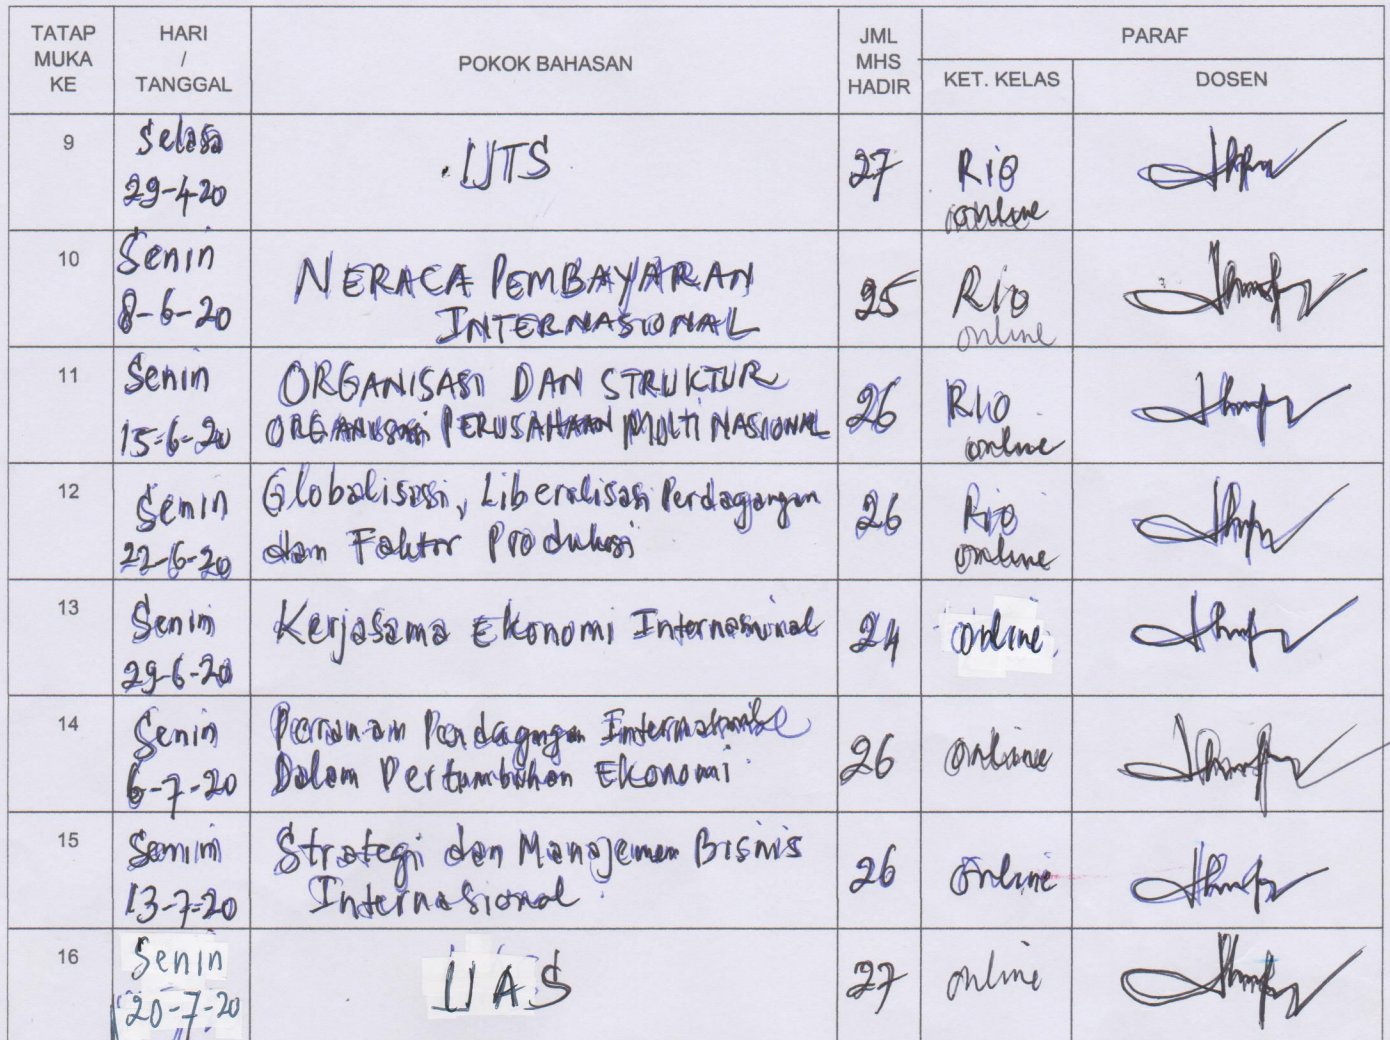 TATAP MUKA KE
HARI / TANGGAL
POKOK BAHASAN
JML MHS HADIR
PARAF
KET. KELAS
DOSEN
9
Selasa
29-4-20
UTS
27
Rio
online
10
Senin
8-6-20
NERACA PEMBAYARAN
INTERNASIONAL
25
Rio
online
11
Senin
15-6-20
ORGANISASI DAN STRUKTUR
ORGANISASI PERUSAHAAN MULTI NASIONAL
26
Rio
online
12
Senin
22-6-20
Globalisasi, Liberalisasi Perdagangan
dan Faktor Produksi
26
Rio
online
13
Senin
29-6-20
Kerjasama Ekonomi Internasional
24
online
14
Senin
6-7-20
Peranan Perdagangan
Dalam Pertumbuhan Ekonomi
26
online
15
Senin
13-7-20
Strategi dan Manajemen Bisnis
Internasional
26
online
16
Senin
20-7-20
UAS
27
online